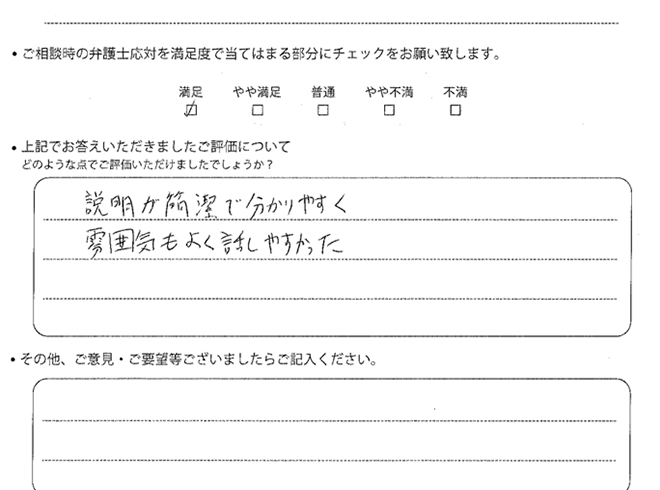 • ご相談時の弁護士応対を満足度で当てはまる部分にチェックをお願い致します。
満足 やや満足 普通 やや不満 不満
☑ □ □ □ □
• 上記でお答えいただきましたご評価について
どのような点でご評価いただけましたでしょうか？
説明が簡潔で分かりやすく
雰囲気もよく話しやすかった
• その他、ご意見・ご要望等ございましたらご記入ください。